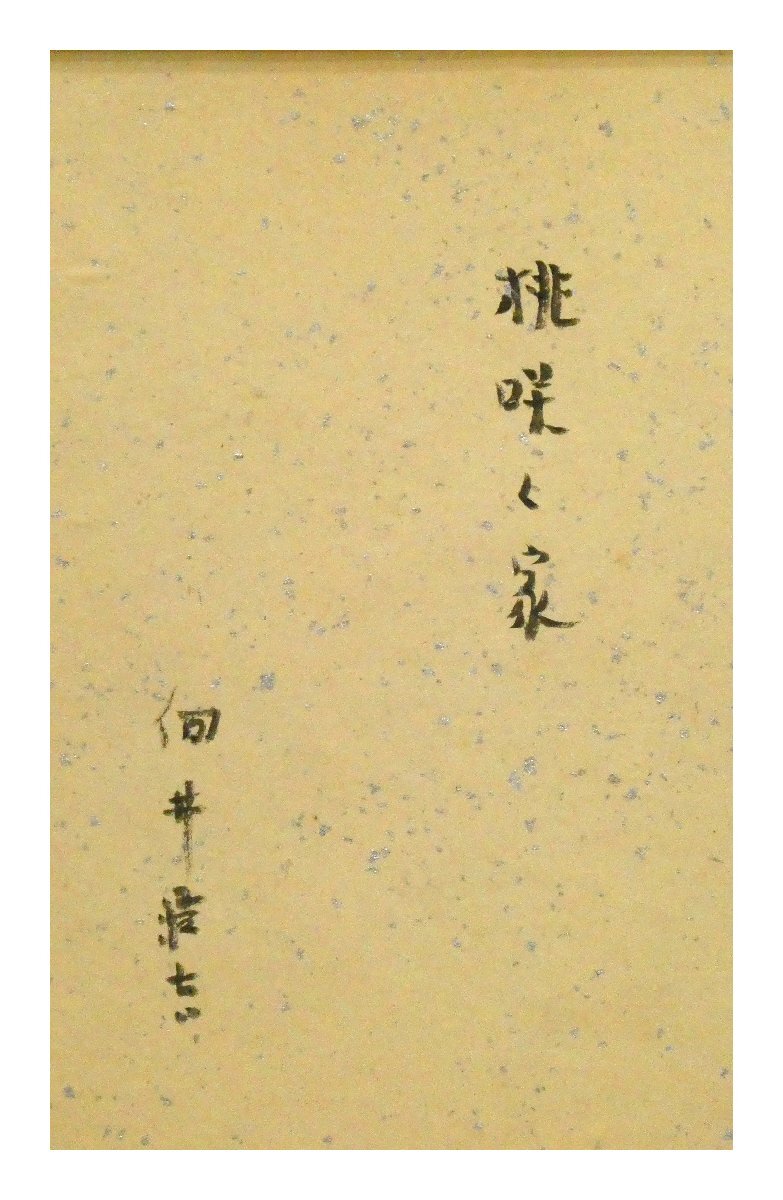 桃咲く家
向井潤吉